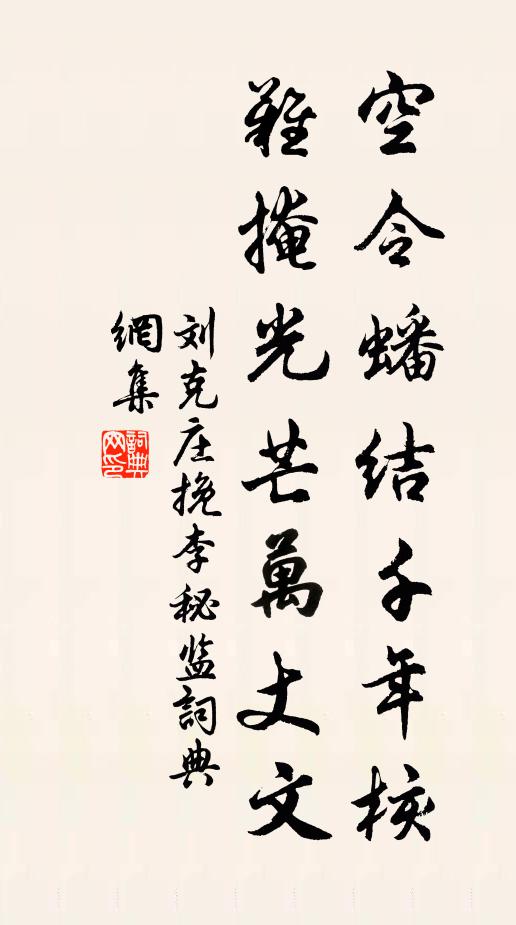 空令蟠结千年核
難掩光芒萬丈文
刘克庄挽李秘监詞典
網集
詞典網印